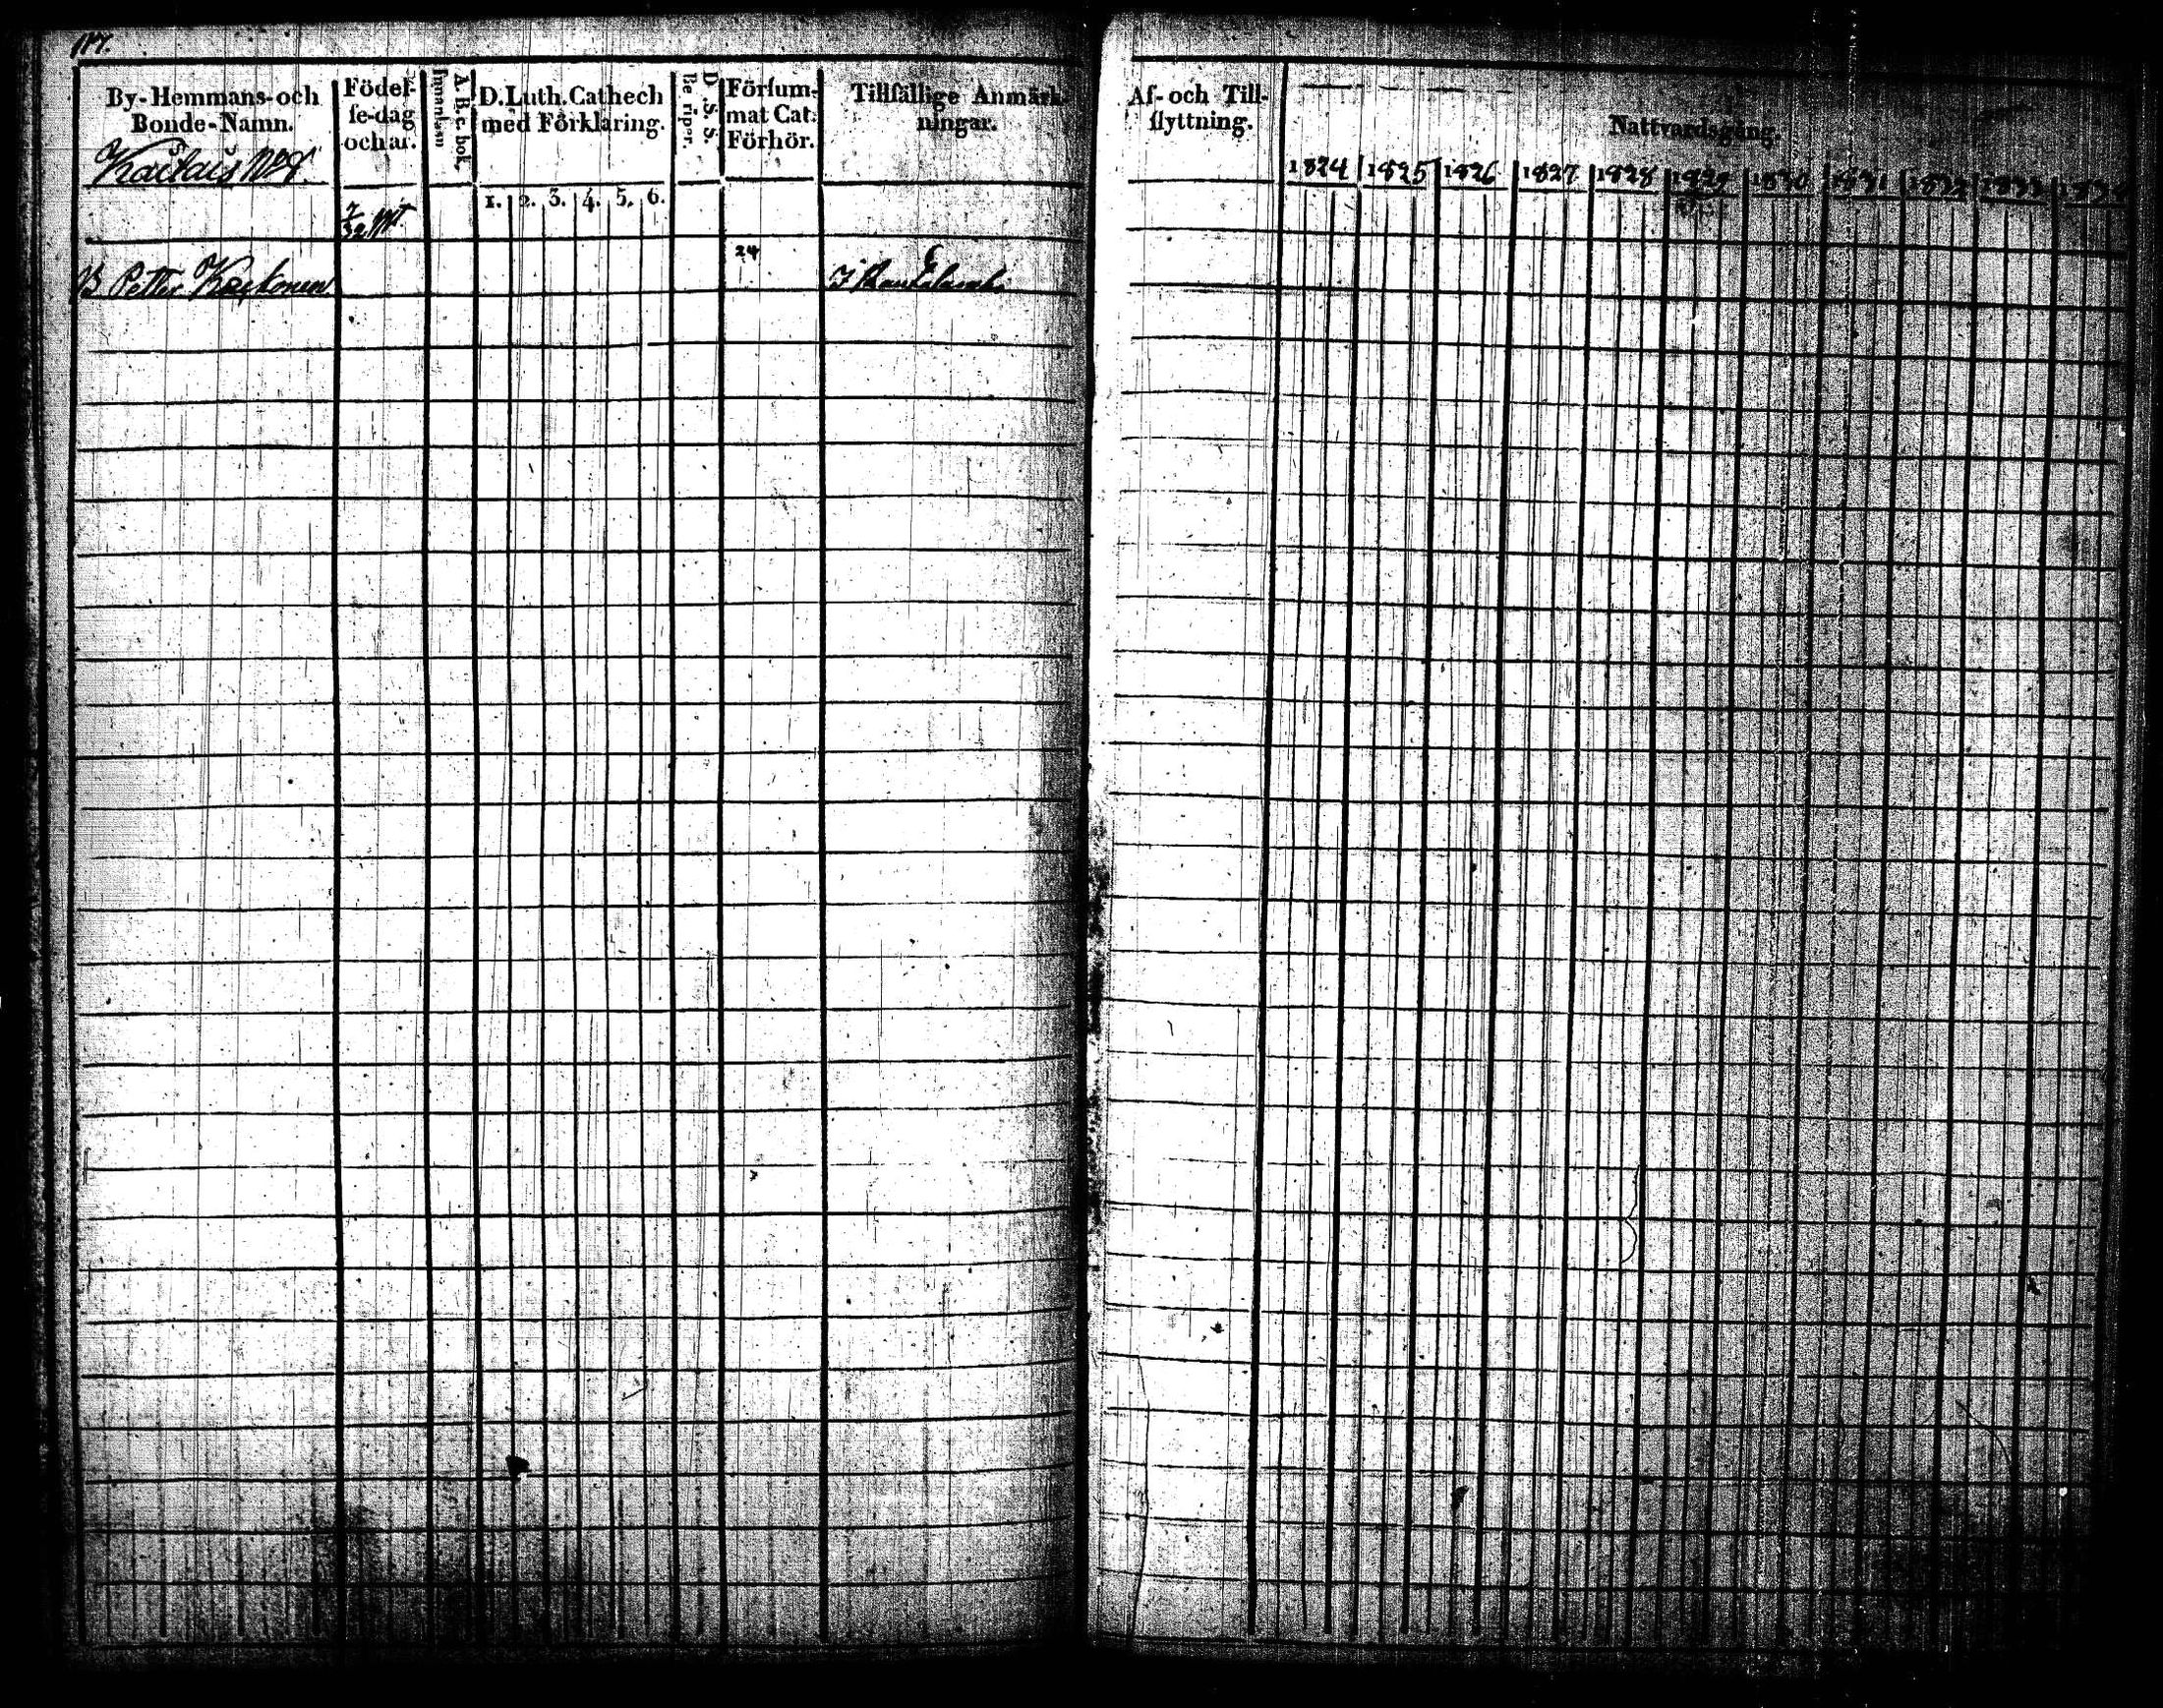 117.
By-Hemmans-och Bonde-Namn.
Födel-
se-dag
och år.
A.B.c.bok.
Innanläsn
D.Luth.Cathech
med Förklaring.
1. 2. 3. 4. 5. 6.
D. S. S.
Försum-
mat Cat.
Förhör.
Tillfällige Anmärk-
ningar.
7/32 Mt
B Petter
24
Af- och Till-
flyttning.
Nattvardsgång.
1824 1825 1826 1827 1828 1829 1830 1831 1832 1833